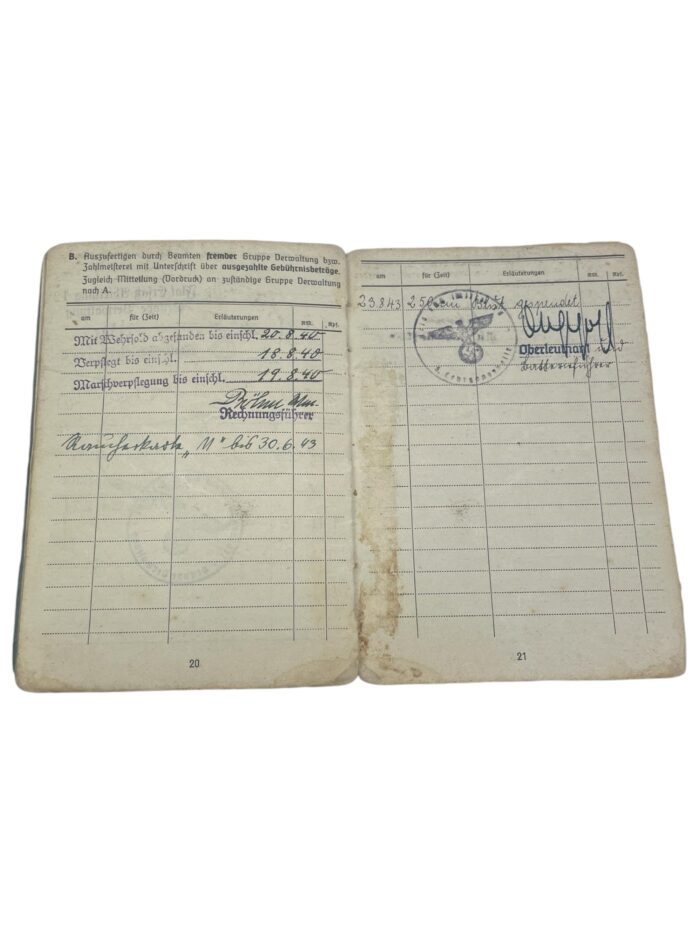 B. Auszufertigen durch Beamten fremder Gruppe Verwaltung bzw.
Zahlmeisterei mit Unterschrift über ausgezahlte Gebührnisbeträge.
Zugleich Mitteilung (Vordruck) an zuständige Gruppe Verwaltung
nach A.
am für (Zeit) Erläuterungen RM. Rpf.
Mit Wehrsold abgefunden bis einschl. 20.8.40
Verpflegt bis einschl. 18.8.40
Marschverpflegung bis einschl. 19.8.40
Böhm
Rechnungsführer
Raucherkarte „M" bis 30.6.43
20
am für (Zeit) Erläuterungen RM. Rpf.
23.8.43 250 Blut gespendet
Oberleutnant und
Batterieführer
21